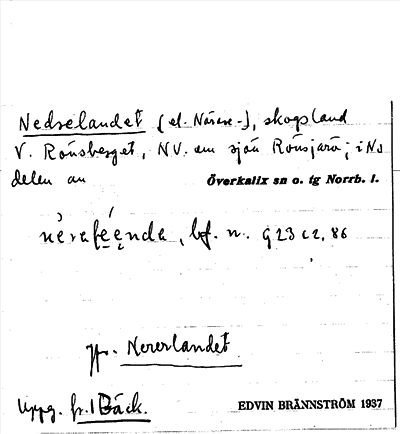 Nedselandet (el. Närase-), skogsland
V. Rönsberget, NV. om sjön Rönsjärv; i Nö
delen av Överkalix sn o. tg Norrb. l.
bf. n. G 23 c 2, 86
jfr. Nererlandet
Uppg. fr. Bäck. EDVIN BRÄNNSTRÖM 1937